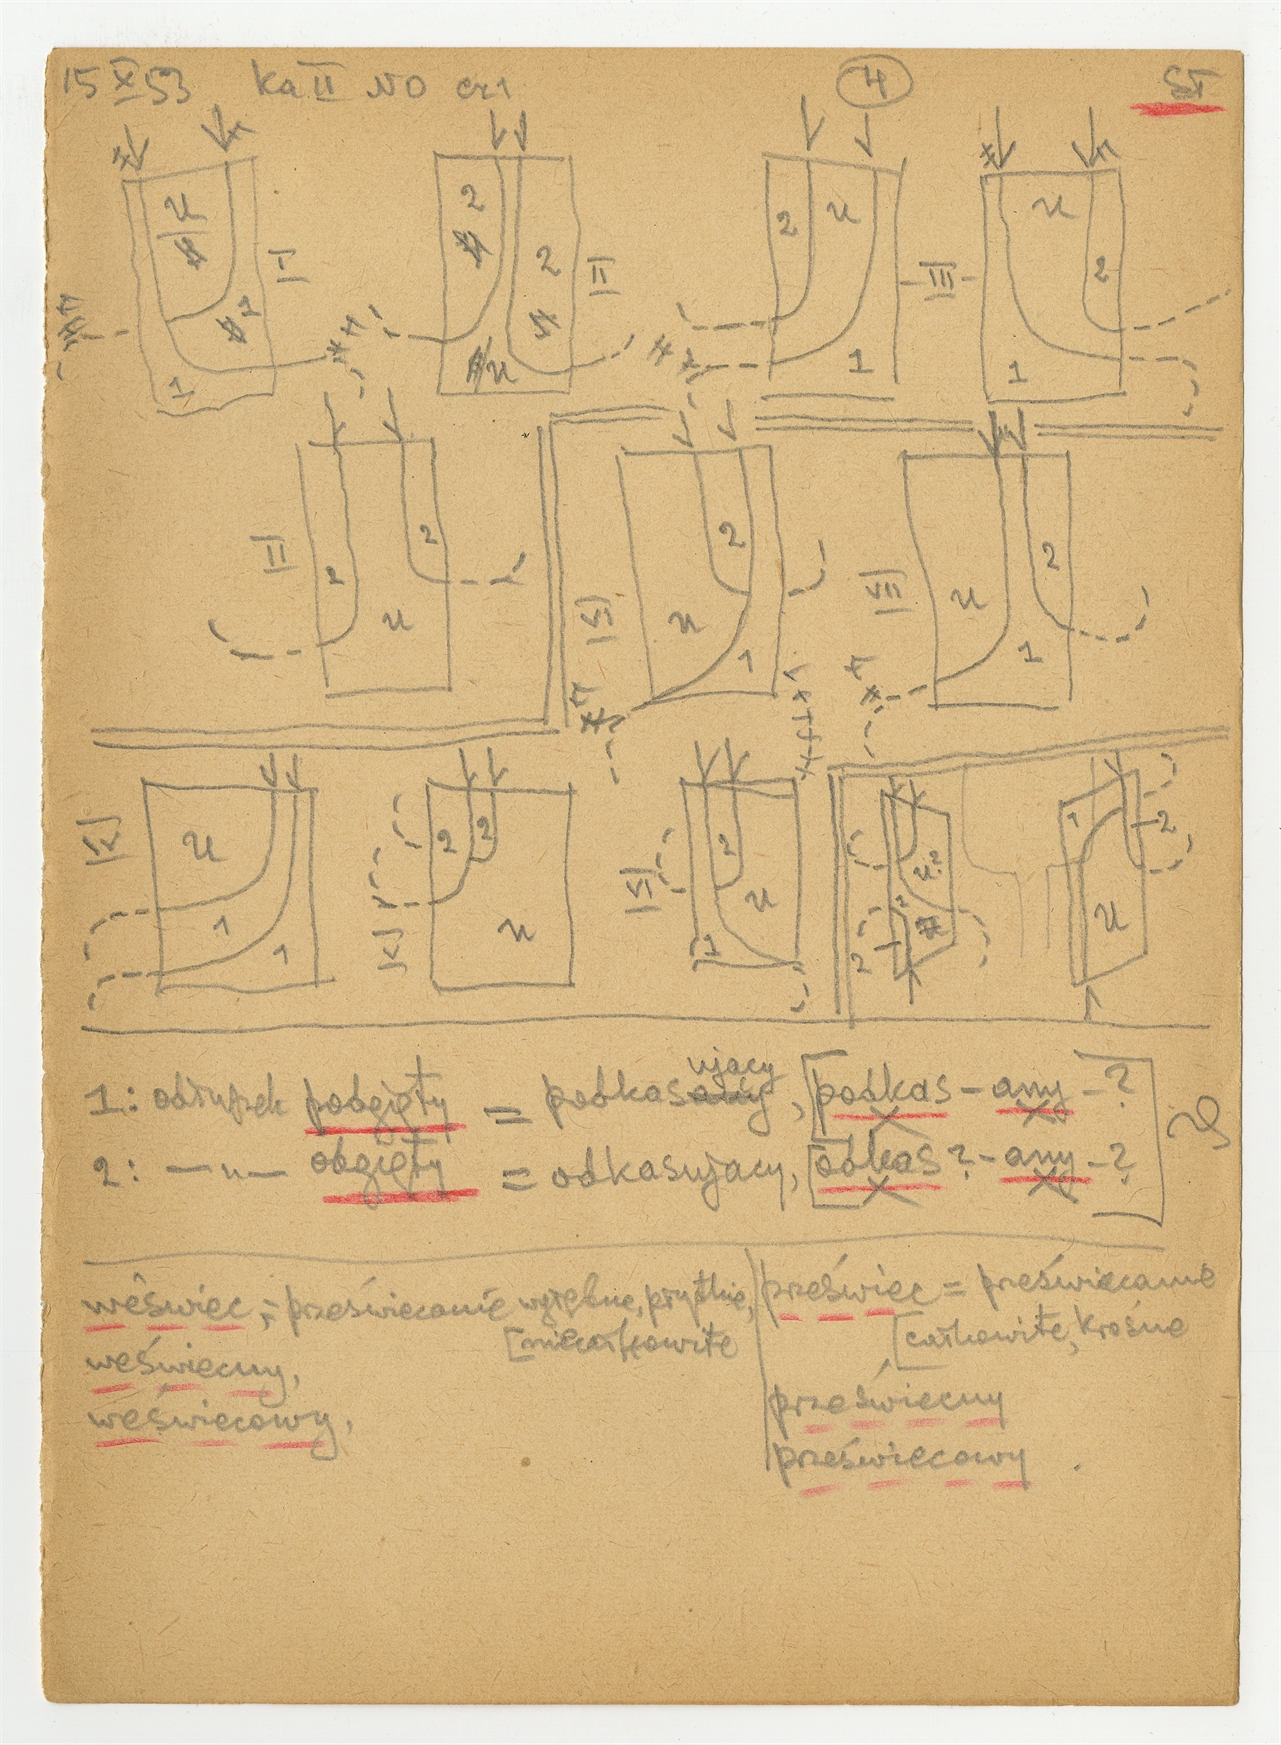 15 X 53 Ka II NO cz 1 4 ST
u 2 2 u u
2 1 I II III 2
1 u 1 1
II 2 2 u
VI 2 u 1
VII u 2 1
IV u 1 1
V 2 2 u
VI 2 u 1
u? 2 1 2 u
1: odłupek podgięty = podkasujący, [podkas - any - ?
2: —„— odgięty = odkasujący, [odkas? - any - ?]
weświec, = przeświecanie wgłębne, płytkie,
[niecałkowite
weświecny,
weświecowy,
przeświec = przeświecanie
[całkowite, krośne
przeświecny
przeświecowy.